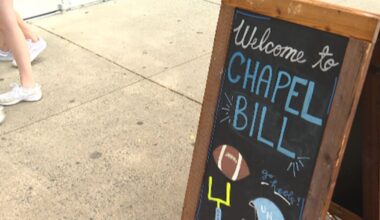 Welcome to
CHAPEL
BILL
go heels!